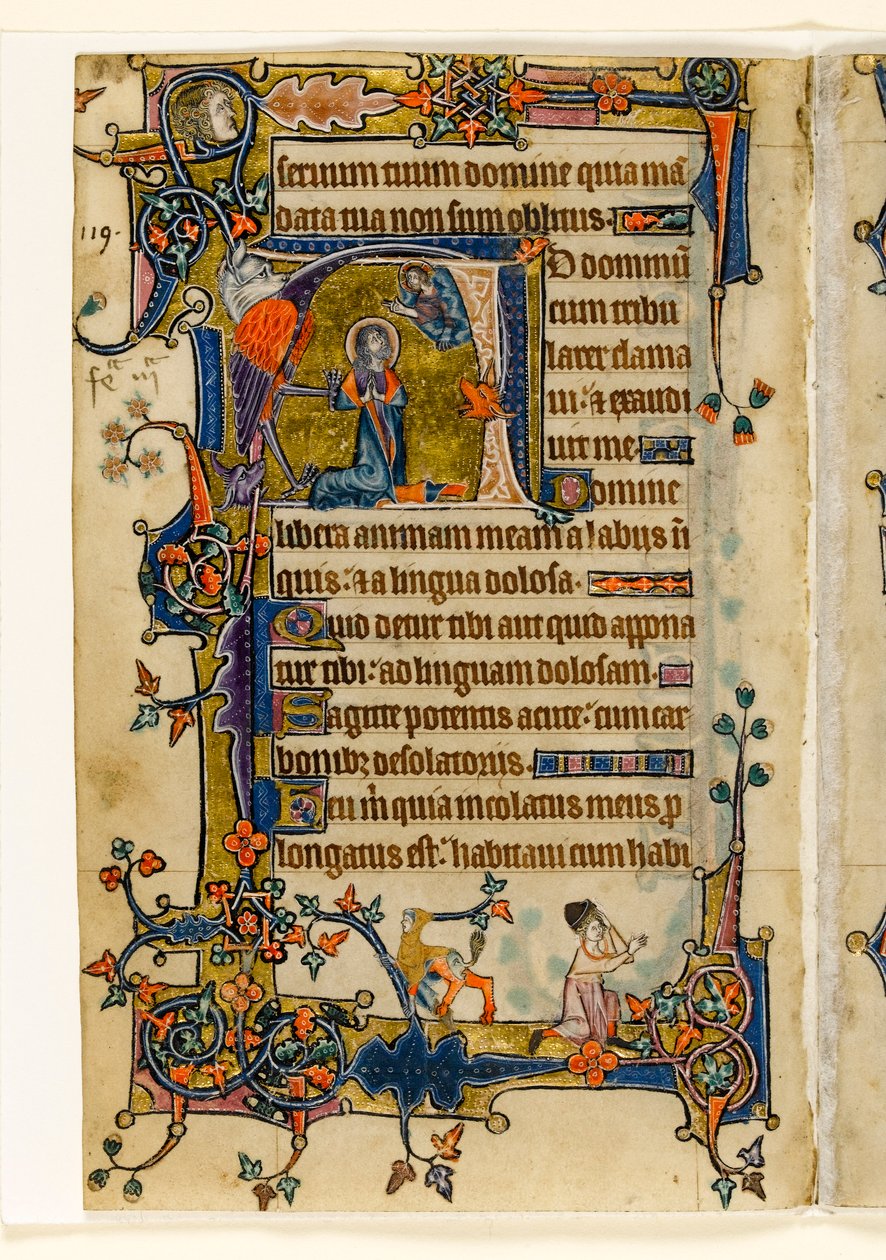 seruum tuum domine quia mā
data tua non sum oblitus.
119.
A
D dominū
cum tribu
larer clama
ui: et exaudi
uit me.
fe iij
Domine
libera animam meam a labijs ini
quis: et a lingua dolosa.
Quid detur tibi aut quid appona
tur tibi: ad linguam dolosam.
Sagitte potentis acute: cum car
bonibꝫ desolatorijs.
Heu m̄ quia incolatus meus ꝓ
longatus est: habitaui cum habi